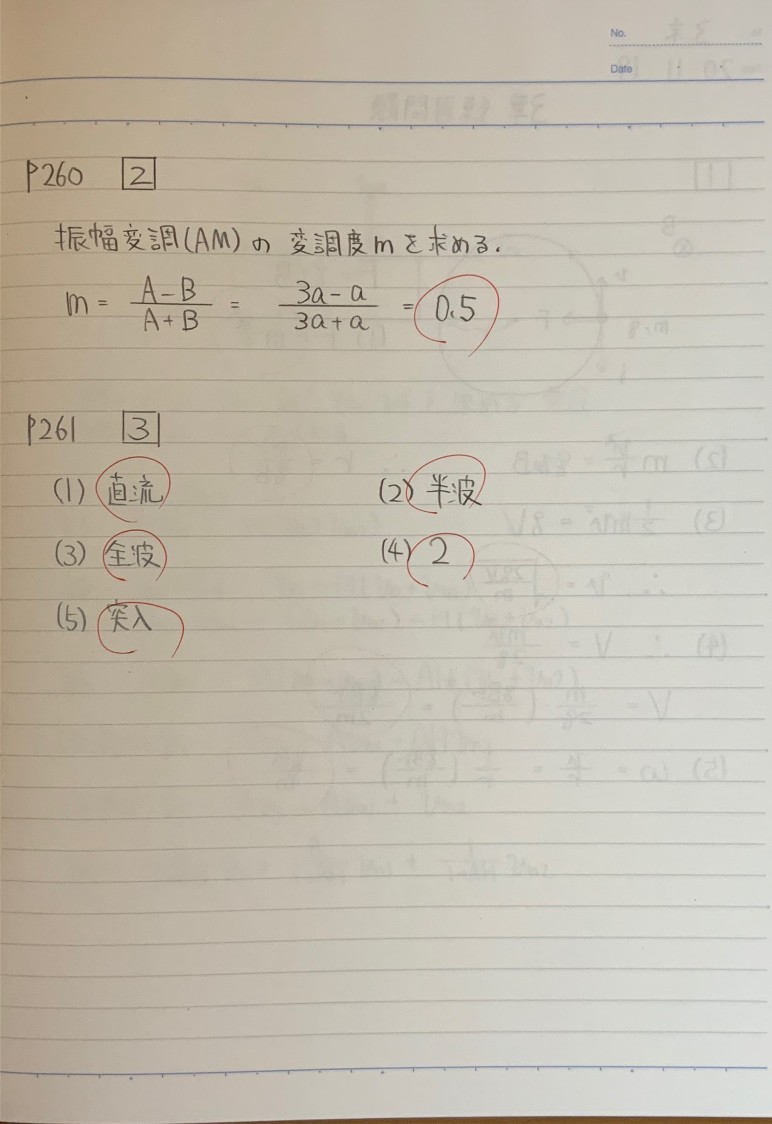 No.
Date
P260 2
振幅変調(AM)の変調度mを求める.
m = \frac{A-B}{A+B} = \frac{3a-a}{3a+a} = 0.5
P261 3
(1) 直流 (2) 半波
(3) 全波 (4) 2
(5) 突入